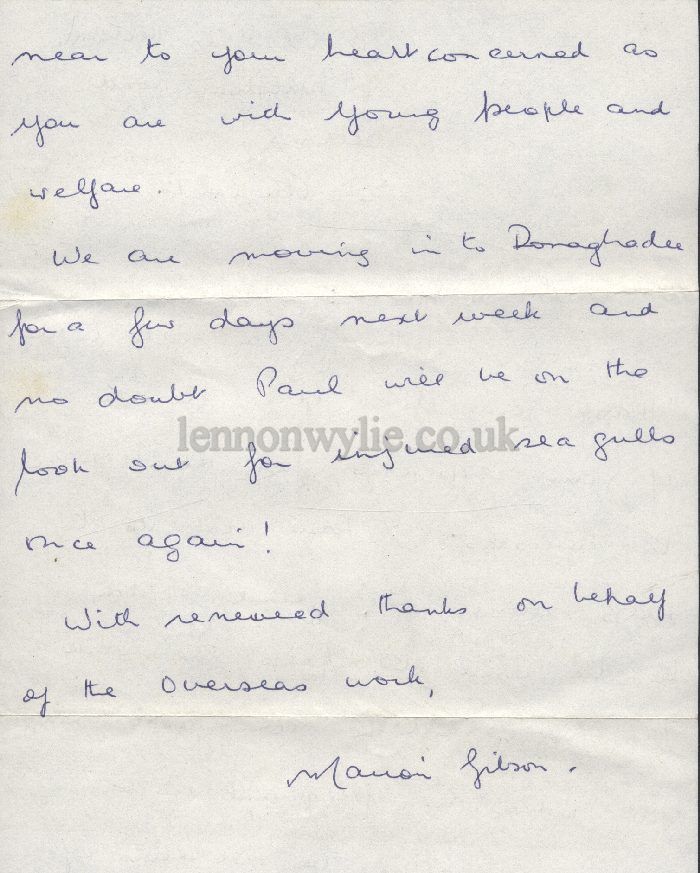 near to your heart concerned as
you are with young people and
welfare.
We are moving in to Donaghadee
for a few days next week and
no doubt Paul will be on the
lennonwylie.co.uk
look out for injured sea gulls
once again!
With renewed thanks on behalf
of the Overseas work,
Marion Gibson.